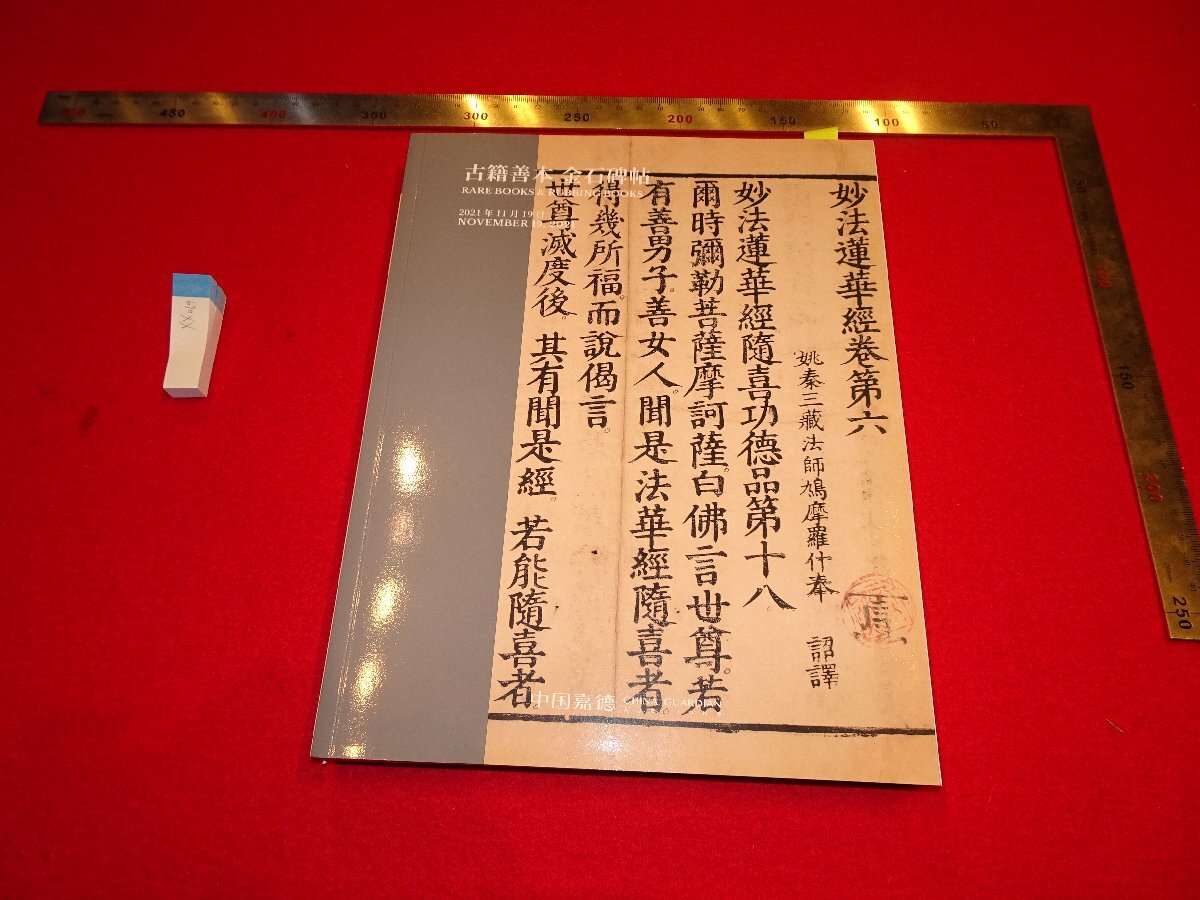 500 450 400 350 300 250 200 150 100 50
100
150
200
250
古籍善本 金石碑帖
RARE BOOKS & RUBBING BOOKS
2021 年 11 月 19 日
NOVEMBER 19, 2021
妙法蓮華經卷第六
姚秦三藏法師鳩摩羅什奉 詔譯
妙法蓮華經隨喜功德品第十八。
爾時彌勒菩薩摩訶薩。白佛言世尊。若
有善男子。善女人。聞是法華經隨喜者。
得幾所福。而說偈言。
世尊滅度後。其有聞是經。若能隨喜者。
中国嘉德 CHINA GUARDIAN